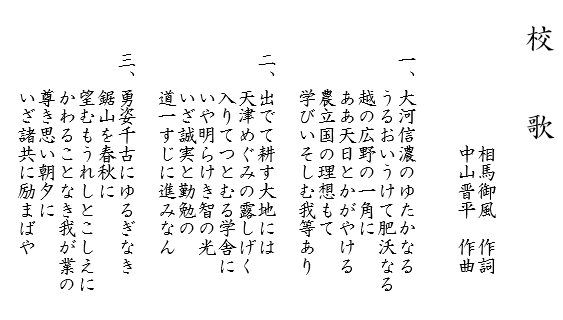 校歌
相馬御風　作詞
中山晋平　作曲
一、大河信濃のゆたかなる
うるおいうけて肥沃なる
越の広野の一角に
ああ天日とかがやける
農立国の理想もて
学びいそしむ我等あり
二、出でて耕す大地には
天津めぐみの露しげく
入りてつとむる学舎に
いや明らけき智の光
いざ誠実と勤勉の
道一すじに進みなん
三、勇姿千古にゆるぎなき
鋸山を春秋に
望むもうれしとこしえに
かわることなき我が業の
尊き思い朝夕に
いざ諸共に励まばや